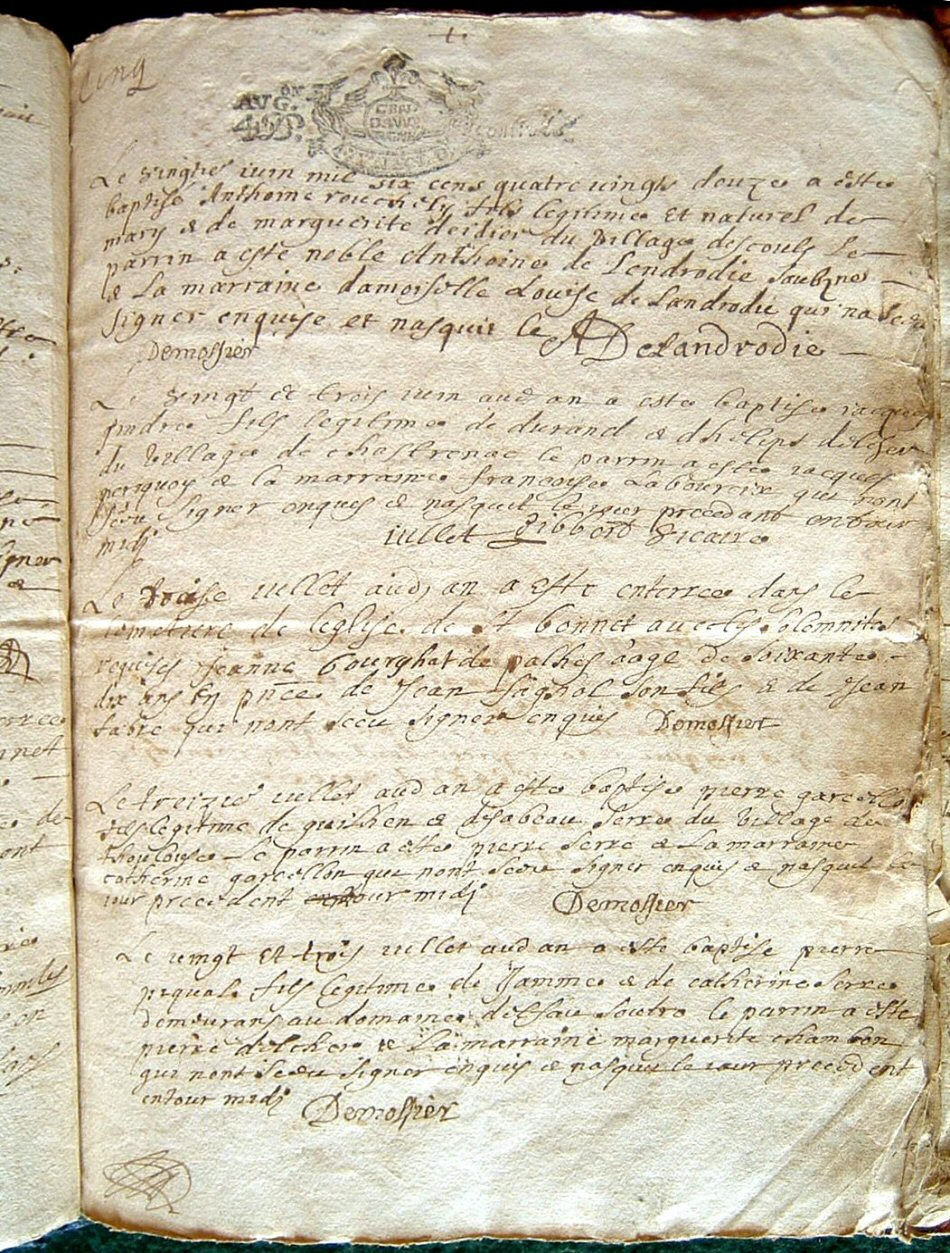 Cinq
AVG.on
40D.
Le vingties iuin mil six cens quatre vingts douze a este
baptisé Anthoine fils legitime et naturel de
mary & de marguerite deidier du village descouls le
parrin a esté noble Anthoine de Lendrodie
& La marraine damoiselle Louise de Landrodie qui na sceu
signer enquise et nasquit le ADeLandrodie
Demossier
Le vingt & trois iuin aud an a este baptise iacques
fils legitime de durand & dhelips delcher
du village de chastrenac le parrin a este iacques
& la marraine francoise Laboureix qui nont
sceu signer enques & nasquit le iour precedant entour
midj iullet Gibbert vicaire
Le troise iullet aud an a este enterree dans le
cemetiere de leglise de st bonnet avec les solemnites
requises Jeanne bourghat de palhes aage de soixante
dix ans En pnce de Jean Sagnol son fils & de Jean
fabre qui nont sceu signer enquis Demossier
Le treizie iullet aud an a este baptise pierre garcellon
fils legitime de guilhen & disabeau serre du village de
thoulouse Le parrin a este pierre serre & La marraine
catherine garcellon qui nont sceu signer enquis & nasquit le
iour precedent entour midj Demossier
Le vingt et trois iullet aud an a este baptise pierre
pequal fils legitime de Jamme & de catherine serre
demeurans au domaine delsau soutro le parrin a este
pierre delcher & La marraine marguerite chambon
qui nont sceu signer enquis & nasquit le iour precedent
entour midj Demossier